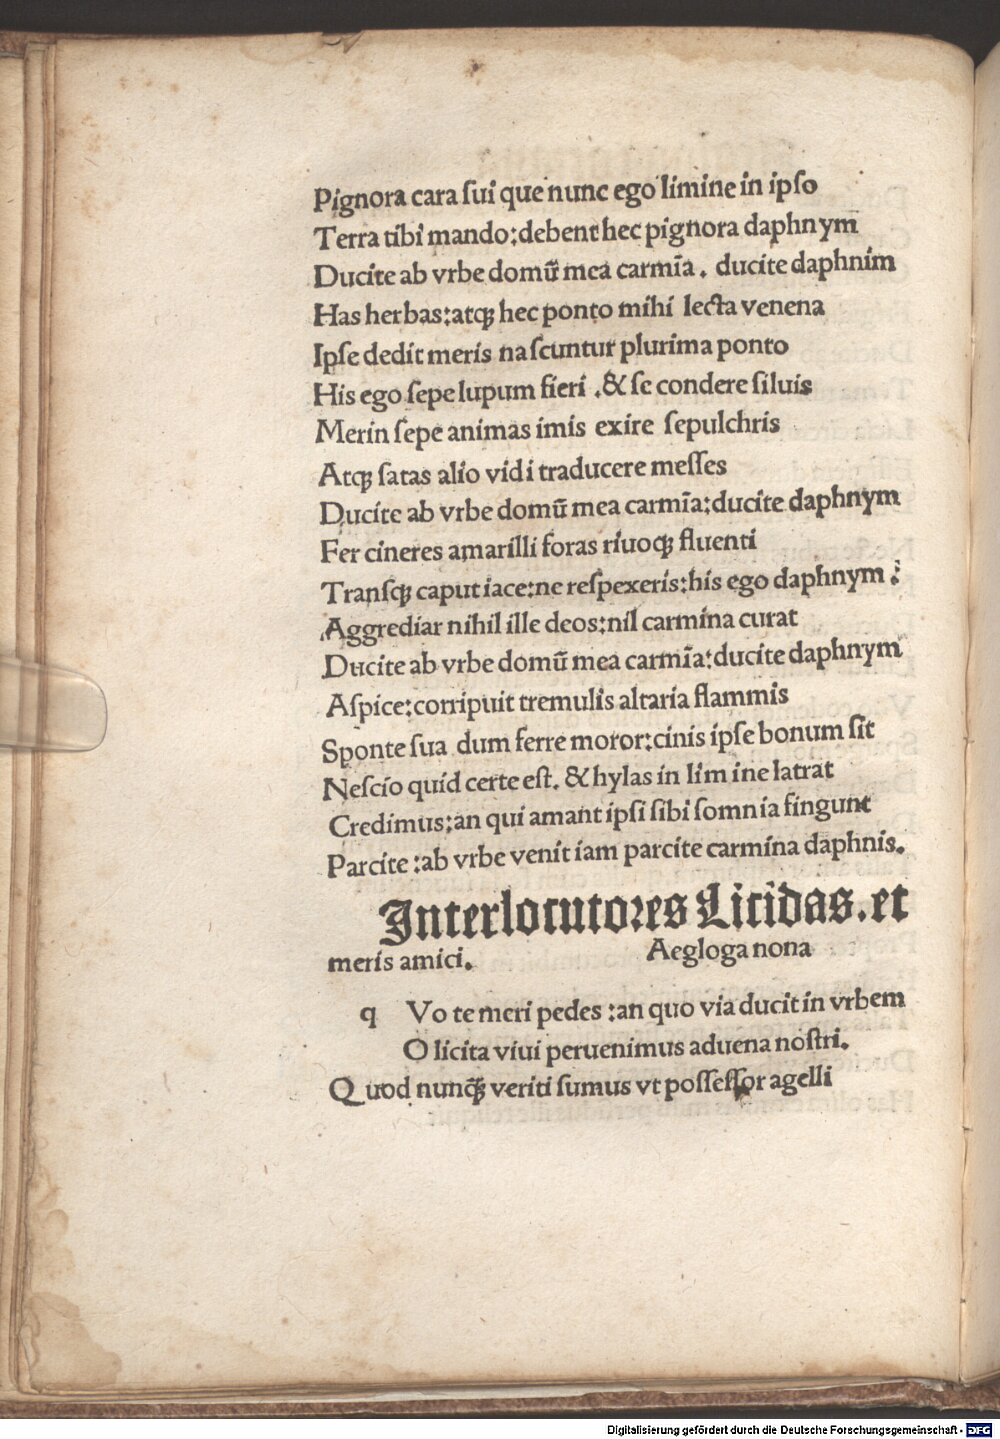 Pignora cara ſui que nunc ego limine in ipſo
Terra tibi mando:debent hec pignora daphnym
Ducite ab vrbe domū mea carmīa. ducite daphnim
Has herbas:atqꝫ hec ponto mihi lecta venena
Ipſe dedit meris naſcuntur plurima ponto
His ego ſepe lupum fieri .& ſe condere ſiluis
Merin ſepe animas imis exire ſepulchris
Atqꝫ ſatas alio vidi traducere meſſes
Ducite ab vrbe domū mea carmīa:ducite daphnym
Fer cineres amarilli foras riuoqꝫ fluenti
Tranſqꝫ caput iace:ne reſpexeris:his ego daphnym .
Aggrediar nihil ille deos:nil carmina curat
Ducite ab vrbe domū mea carmīa:ducite daphnym
Aſpice:corripuit tremulis altaria flammis
Sponte ſua dum ferre moror:cinis ipſe bonum ſit
Neſcio quid certe eſt. & hylas in lim ine latrat
Credimus:an qui amant ipſi ſibi ſomnia fingunt
Parcite :ab vrbe venit iam parcite carmina daphnis.
Interlocutoꝛes Licidas.et
meris amici. Aegloga nona
q Vo te meri pedes :an quo via ducit in vrbem
O licita viui peruenimus aduena noſtri.
Quod nunꝙ̄ veriti ſumus vt poſſeſſor agelli
Digitalisierung gefördert durch die Deutsche Forschungsgemeinschaft - DFG